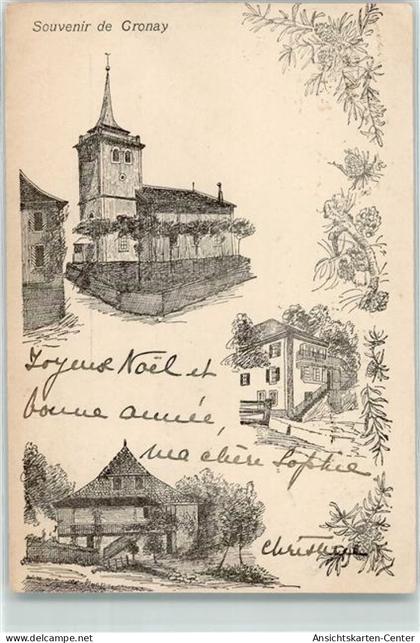 Souvenir de Gronay
Joyeux Noël et
bonne année,
ma chère Sophie
Christine
www.Ansichtskarten-Center.de
Ansichtskarten-Center